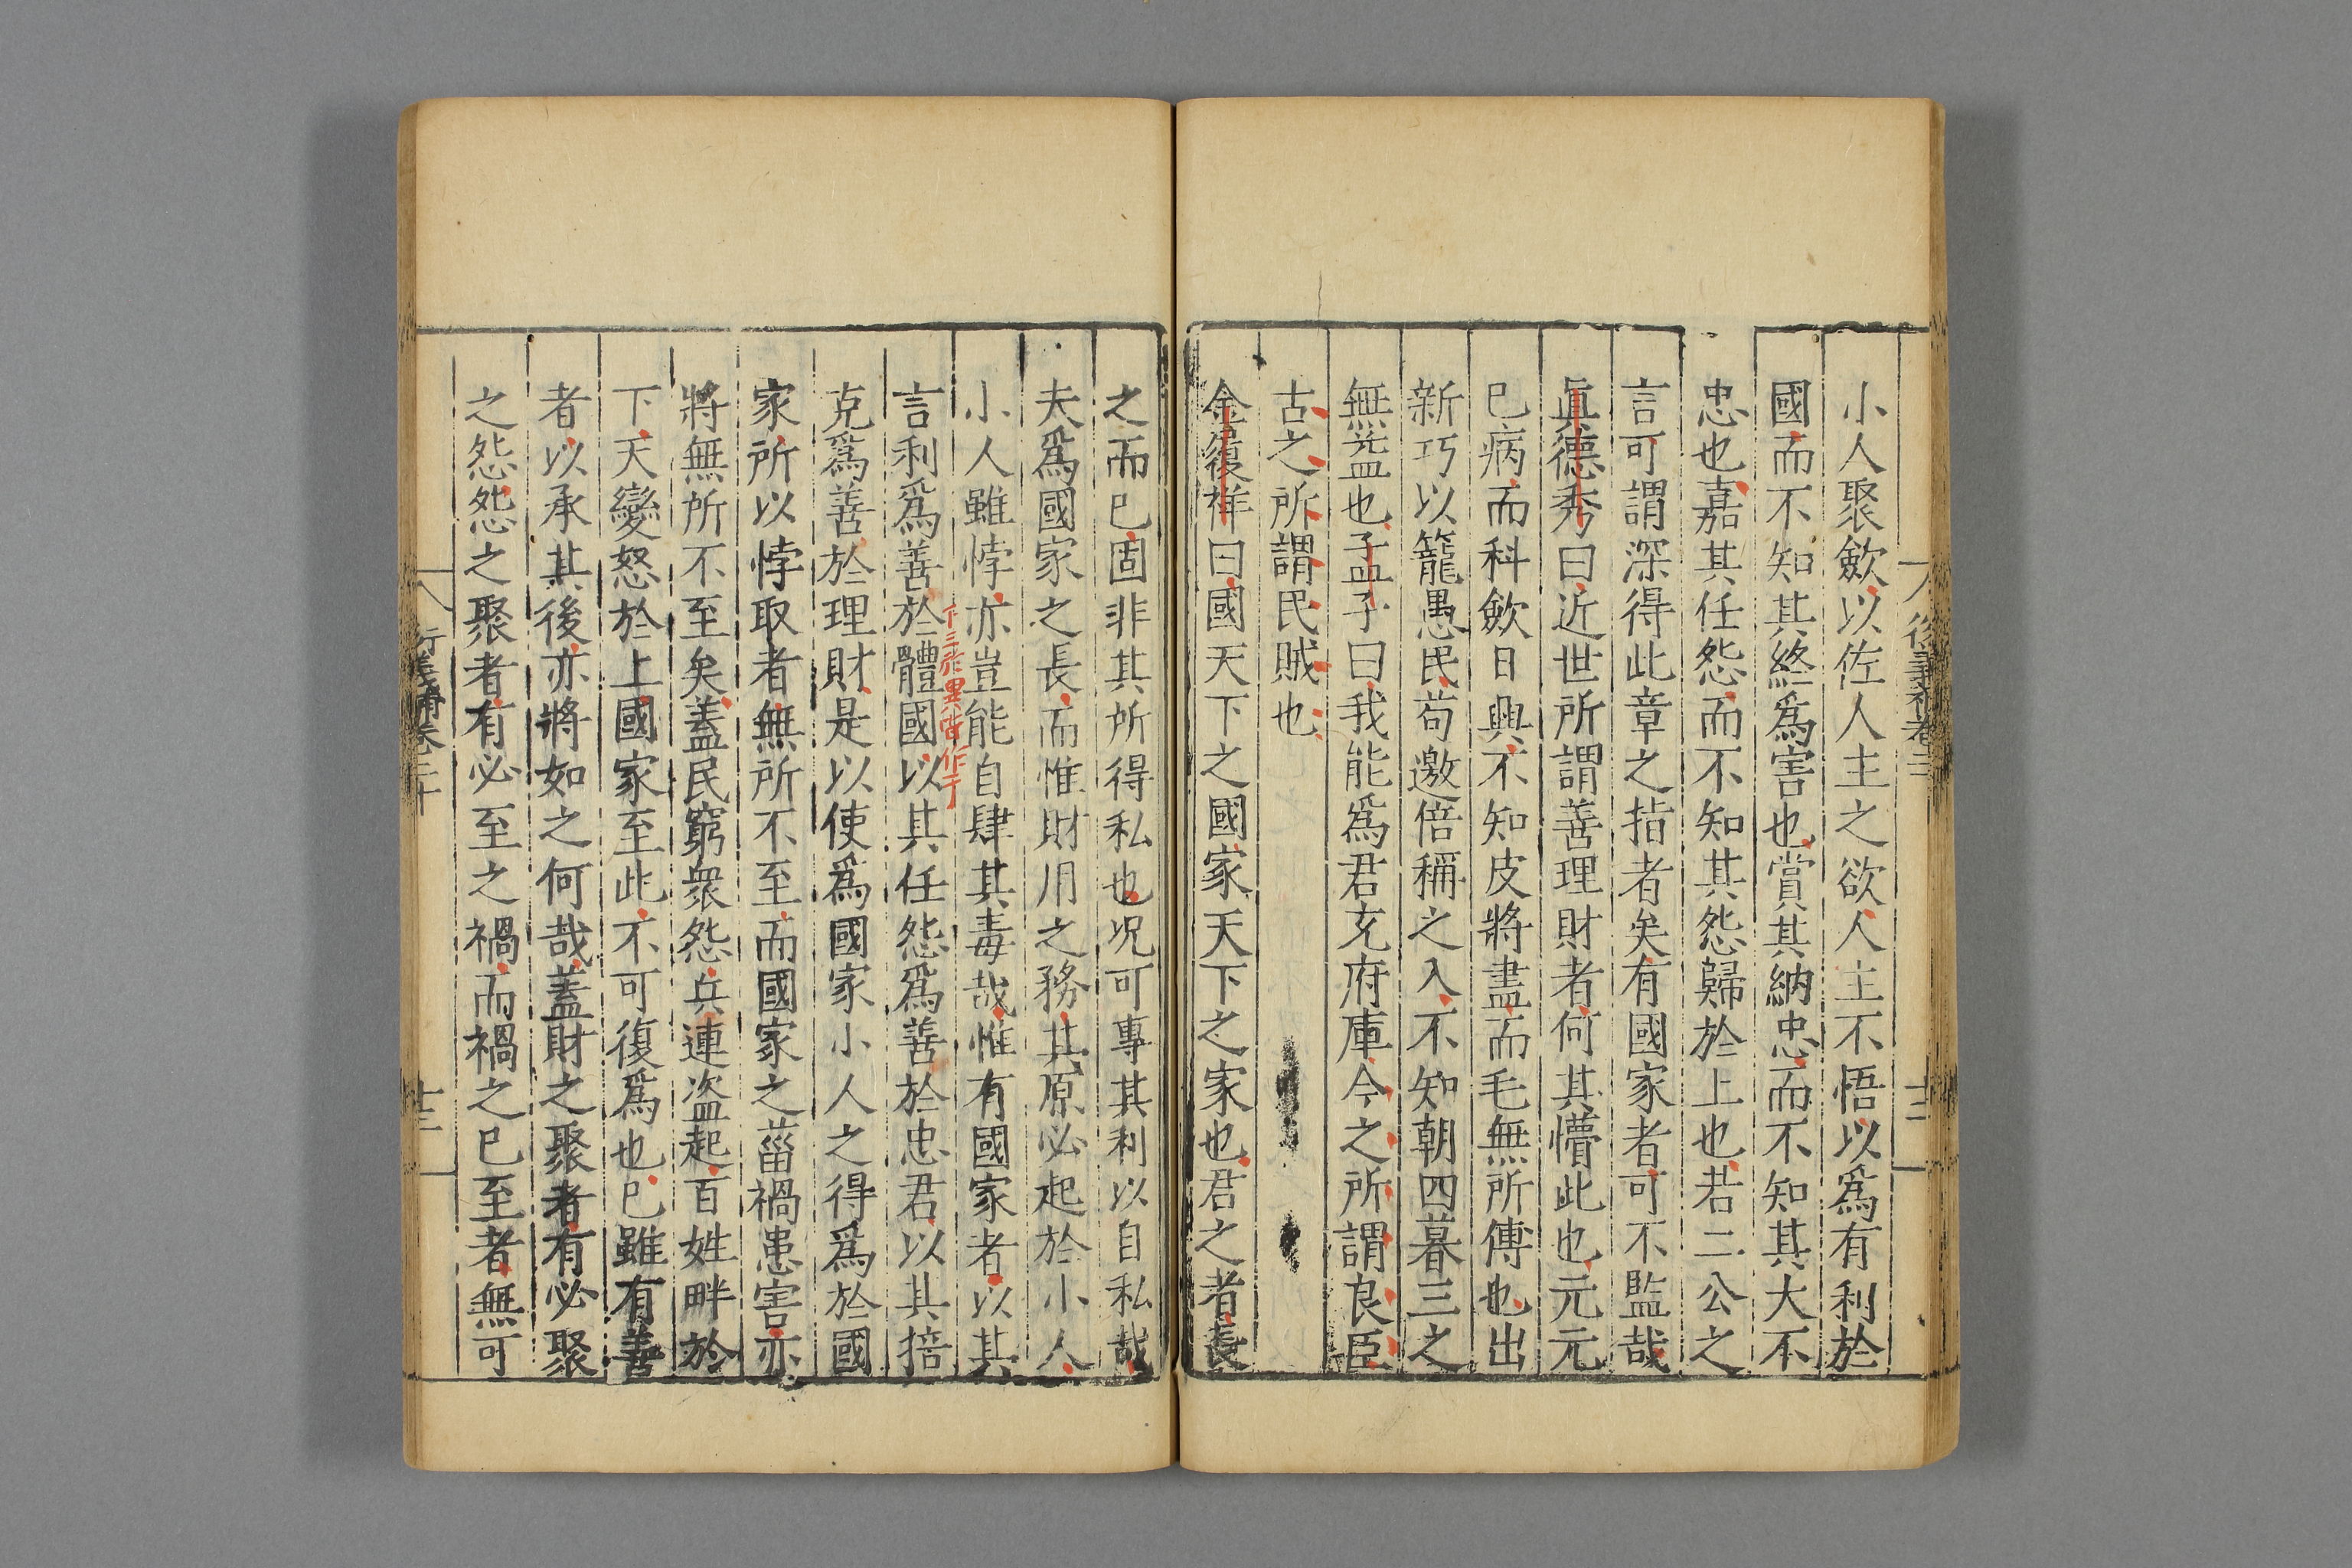 小人聚斂以佐人主之欲人主不悟以爲有利於
國而不知其終爲害也賞其納忠而不知其大不
忠也嘉其任怨而不知其怨歸於上也若二公之
言可謂深得此章之指者矣有國家者可不監哉
眞德秀曰近世所謂善理財者何其懵此也元元
已病而科斂日興不知皮將盡而毛無所傅也出
新巧以籠愚民苟邀倍稱之入不知朝四暮三之
無益也孟子曰我能爲君充府庫今之所謂良臣
古之所謂民賊也
金履祥曰國天下之國家天下之家也君之者長
之而已固非其所得私也况可專其利以自私哉
夫爲國家之長而惟財用之務其原必起於小人
小人雖悖亦豈能自肆其毒哉惟有國家者以其
言利爲善於體國以其任怨爲善於忠君以其掊
克爲善於理財是以使爲國家小人之得爲於國
家所以悖取者無所不至而國家之菑禍患害亦
將無所不至矣蓋民窮衆怨兵連盗起百姓畔於
下天變怒於上國家至此不可復爲也已雖有善
者以承其後亦將如之何哉蓋財之聚者有必聚
之怨怨之聚者有必至之禍而禍之已至者無可